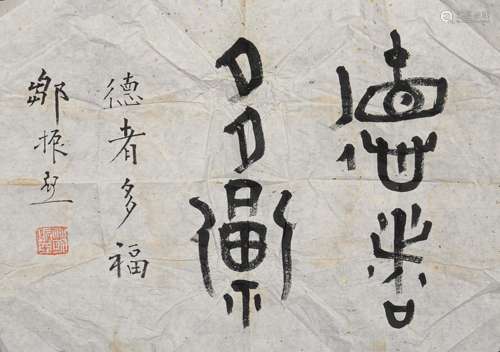 德者
多福
德者多福
鄒振亞